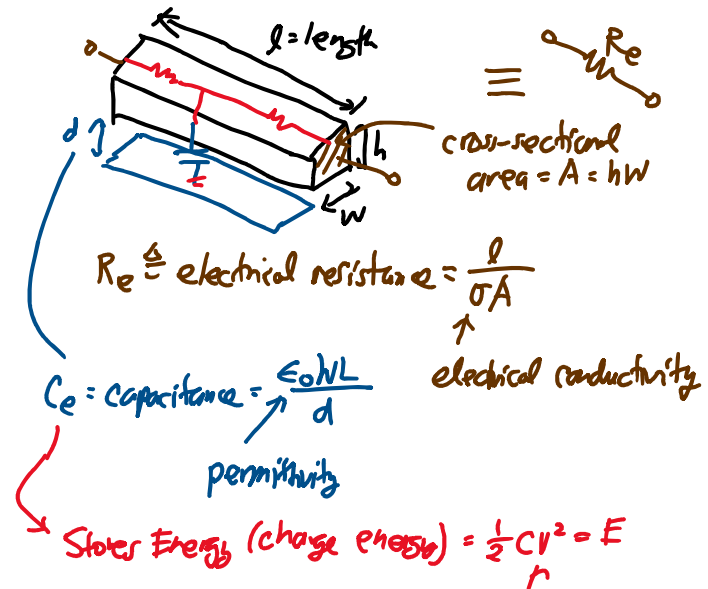 l = length
Re
d
h
w
cross-sectional
area = A = hW
Re ≜ electrical resistance = l / σA
electrical conductivity
Ce = capacitance = ε₀WL / d
permittivity
Stores Energy (charge energy) = 1/2 CV² = E